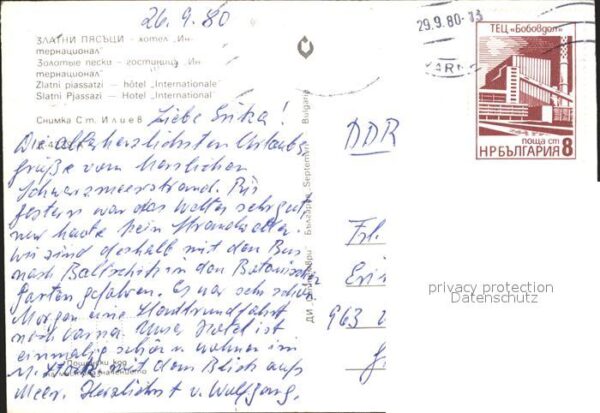 26.9.80
ЗЛАТНИ ПЯСЪЦИ — хотел „Ин-
тернационал"
Золотые пески — гостиница „Ин-
тернационал"
Zlatni piassatzi — hôtel „Internationale"
Slatni Pjassazi — Hotel „International
Снимка Ст. Илиев
Liebe Erika!
Die allerherzlichsten Urlaubs-
grüße vom herrlichen
Schwarzmeerstrand. Bis
gestern war das Wetter sehr gut,
nur heute kein Strandwetter.
Wir sind deshalb mit dem Bus
nach Baltschik in den Botanischen
Garten gefahren. Es war sehr schön.
Morgen eine Stadtrundfahrt
nach Varna. Unser Hotel ist
einmalig schön wohnen im
11. Stock mit dem Blick aufs
Meer. Herzlichst v. Wolfgang.
Пощенски код
ДИ „Септември" България Septemvri Bulgaria
29.9.80-13
ТЕЦ „Бобовдол"
поща ст 8
НРБЪЛГАРИЯ
DDR
Frl.
963
privacy protection
Datenschutz